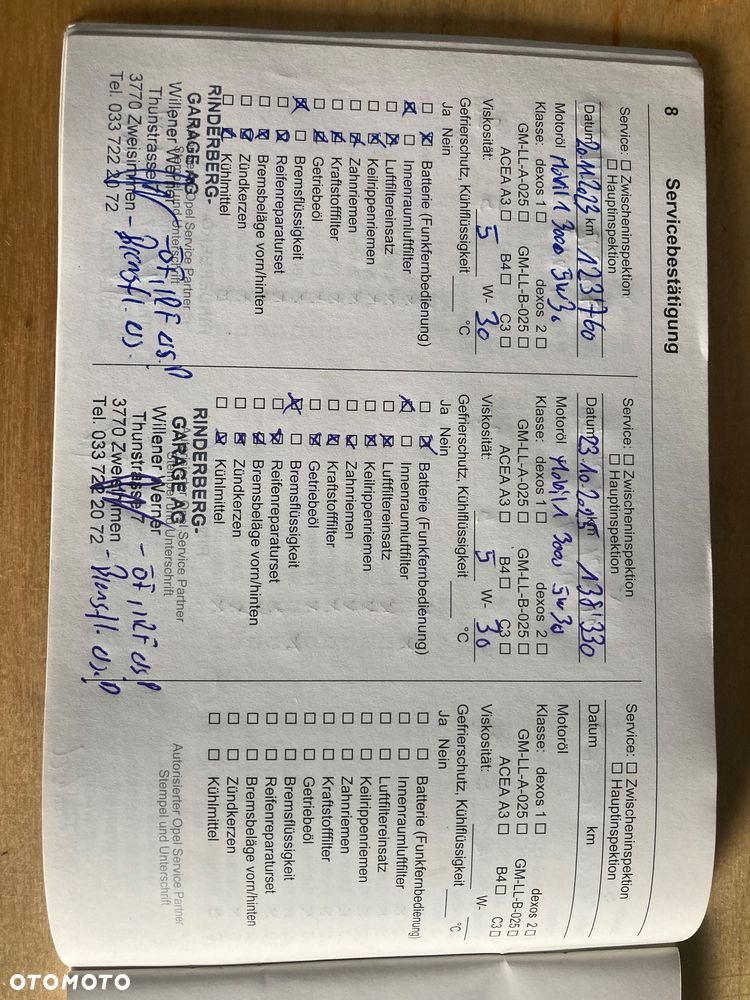 8
Servicebestätigung
Service: ☐ Zwischeninspektion
☐ Hauptinspektion
Datum 20.1.2023 km 123'760
Motoröl Mobil 1 3000 5W30
Klasse: dexos 1 ☐ dexos 2 ☐
GM-LL-A-025 ☐ GM-LL-B-025 ☐
ACEA A3 ☐ B4 ☐ C3 ☐
Viskosität: 5 W- 30
Gefrierschutz, Kühlflüssigkeit °C
Ja Nein
☐ ☒ Batterie (Funkfernbedienung)
☒ ☐ Innenraumluftfilter
☐ ☒ Luftfiltereinsatz
☐ ☒ Keilrippenriemen
☐ ☒ Zahnriemen
☐ ☒ Kraftstofffilter
☐ ☒ Getriebeöl
☒ ☐ Bremsflüssigkeit
☐ ☒ Reifenreparaturset
☐ ☒ Bremsbeläge vorn/hinten
☐ ☒ Zündkerzen
☐ ☒ Kühlmittel
Opel Service Partner
und Unterschrift
RINDERBERG-
GARAGE AG
Willener Werner
Thunstrasse 7
3770 Zweisimmen
Tel. 033 722 20 72
Service: ☐ Zwischeninspektion
☐ Hauptinspektion
Datum 23.10.2025 km 138'330
Motoröl Mobil 1 3000 5W30
Klasse: dexos 1 ☐ dexos 2 ☐
GM-LL-A-025 ☐ GM-LL-B-025 ☐
ACEA A3 ☐ B4 ☐ C3 ☐
Viskosität: 5 W- 30
Gefrierschutz, Kühlflüssigkeit °C
Ja Nein
☐ ☒ Batterie (Funkfernbedienung)
☒ ☐ Innenraumluftfilter
☐ ☒ Luftfiltereinsatz
☐ ☒ Keilrippenriemen
☐ ☒ Zahnriemen
☐ ☒ Kraftstofffilter
☐ ☒ Getriebeöl
☒ ☐ Bremsflüssigkeit
☐ ☒ Reifenreparaturset
☐ ☒ Bremsbeläge vorn/hinten
☐ ☒ Zündkerzen
☐ ☒ Kühlmittel
Service Partner
und Unterschrift
RINDERBERG-
GARAGE AG
Willener Werner
Thunstrasse 7
3770 Zweisimmen
Tel. 033 722 20 72
Service: ☐ Zwischeninspektion
☐ Hauptinspektion
Datum km
Motoröl
Klasse: dexos 1 ☐ dexos 2 ☐
GM-LL-A-025 ☐ GM-LL-B-025 ☐
ACEA A3 ☐ B4 ☐ C3 ☐
Viskosität: W-
Gefrierschutz, Kühlflüssigkeit °C
Ja Nein
☐ ☐ Batterie (Funkfernbedienung)
☐ ☐ Innenraumluftfilter
☐ ☐ Luftfiltereinsatz
☐ ☐ Keilrippenriemen
☐ ☐ Zahnriemen
☐ ☐ Kraftstofffilter
☐ ☐ Getriebeöl
☐ ☐ Bremsflüssigkeit
☐ ☐ Reifenreparaturset
☐ ☐ Bremsbeläge vorn/hinten
☐ ☐ Zündkerzen
☐ ☐ Kühlmittel
Autorisierter Opel Service Partner
Stempel und Unterschrift
OTOMOTO